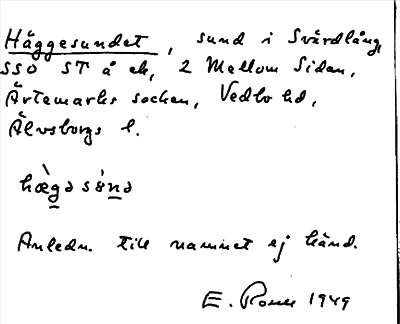 Häggesundet, sund i Svärdlång,
SSO ST å ek, 2 Mellom Sidan,
Ärtemarks socken, Vedbo hd,
Älvsborgs l.
hæ̀gə sɵ́nə
Anledn. till namnet ej känd.
E. 1949